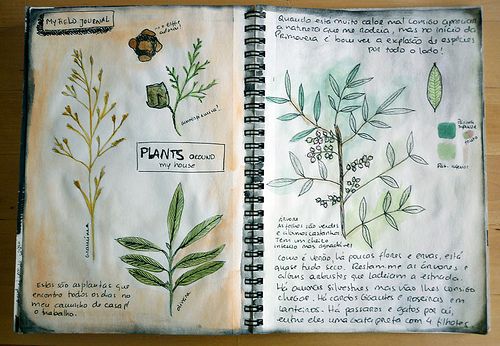 MY FIELD JOURNAL
PLANTS AROUND
my house
Estas são as plantas que
encontro todos os dias no
meu caminho de casa p/
o trabalho.
oliveira
Quando está muito calor mal consigo apreciar
a natureza que me rodeia, mas no início da
Primavera é bom ver a explosão de espécies
por todo o lado!
Árvore
As folhas são verdes
e algumas castanhas.
Tem um cheiro
mais agradável
Como é Verão, há poucas flores e ervas, está
quase tudo seco. Restam-me as árvores e
alguns arbustos que ladeiam a estrada.
Há amoras silvestres mas não lhes consigo
chegar. Há cardos gigantes e roseiras em
canteiros. Há pássaros e gatos por aí,
entre eles uma gata preta com 4 filhotes